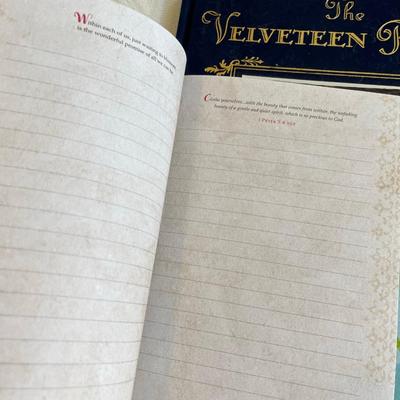 The
VELVETEEN
Within each of us, just waiting to blossom,
is the wonderful promise of all we can be.
Clothe yourselves...with the beauty that comes from within, the unfading
beauty of a gentle and quiet spirit, which is so precious to God.
1 PETER 3:4 NLT